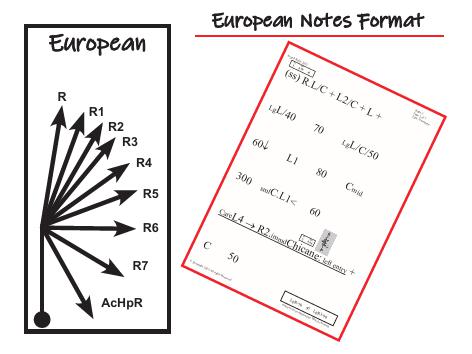 European
R
R1
R2
R3
R4
R5
R6
R7
AcHpR
European Notes Format
(ss) R.L/C + L2/C + L +
LgL/40 70 LgL/C/50
60↓ L1 80 Cmid
300 smlC.L1< 60
CareL4 → R2 immd Chicane: left entry +
C 50